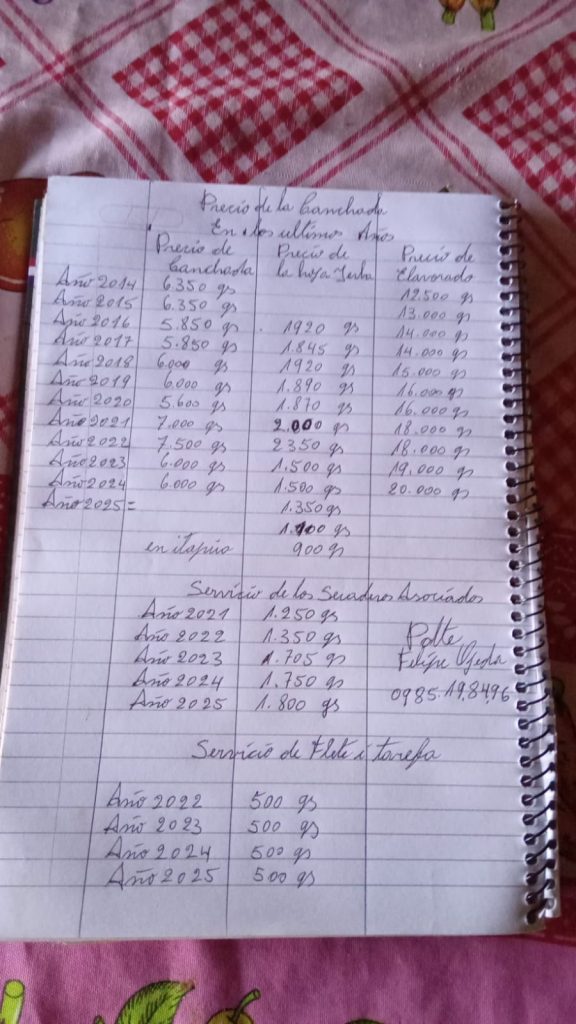 Precio de la Canchada
En los ultimos Años
Precio de Canchada Precio de la hoja Yerba Precio de Elavorado
Año 2014 6.350 gs 12.500 gs
Año 2015 6.350 gs 13.000 gs
Año 2016 5.850 gs 1920 gs 14.000 gs
Año 2017 5.850 gs 1.845 gs 14.000 gs
Año 2018 6.000 gs 1920 gs 15.000 gs
Año 2019 6.000 gs 1.890 gs 16.000 gs
Año 2020 5.600 gs 1.870 gs 16.000 gs
Año 2021 7.000 gs 2.000 gs 18.000 gs
Año 2022 7,500 gs 2350 gs 18.000 gs
Año 2023 6.000 gs 1.500 gs 19.000 gs
Año 2024 6.000 gs 1.500 gs 20.000 gs
Año 2025 = 1.350 gs
1.100 gs
en itapúa 900 gs
Servicio de los Secaderos Asociados
Año 2021 1.250 gs
Año 2022 1.350 gs
Año 2023 1.705 gs
Año 2024 1.750 gs
Año 2025 1.800 gs
Pdte
Felipe Ojeda
0985.198496
Servicio de Flete i tarefa
Año 2022 500 gs
Año 2023 500 gs
Año 2024 500 gs
Año 2025 500 gs